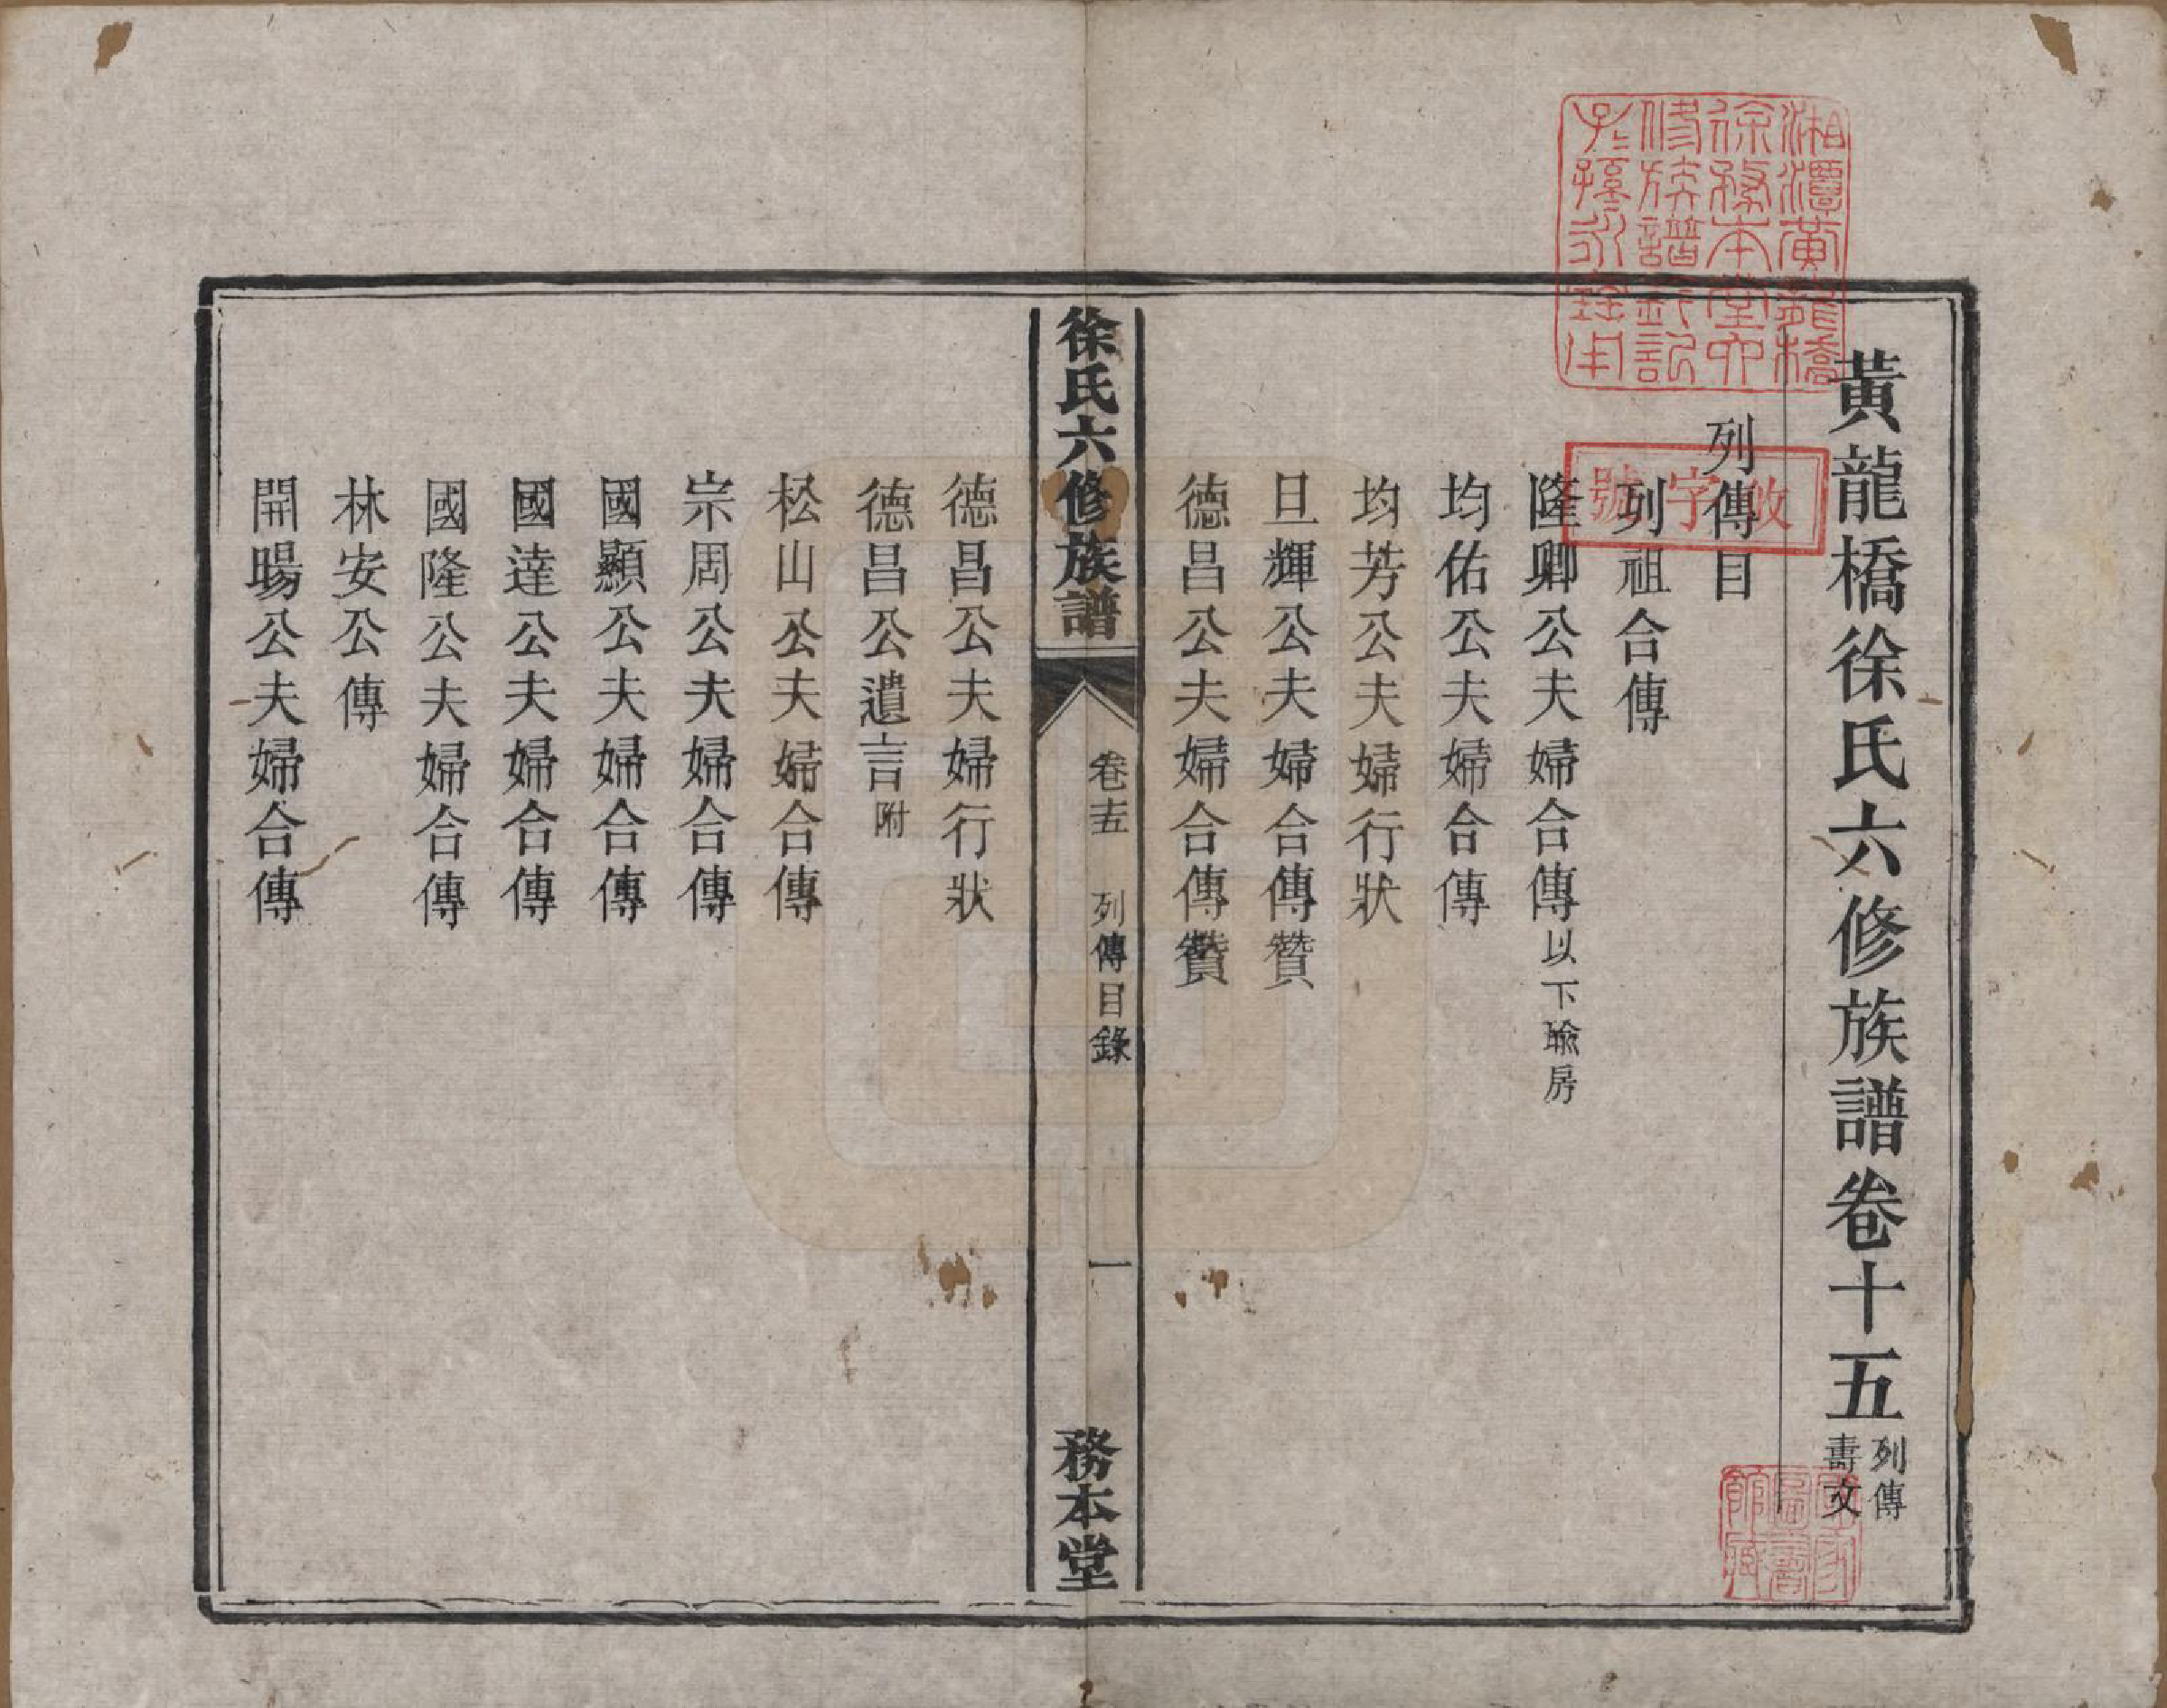 黃龍橋徐氏六修族譜卷十五列傳
壽文
列傳目
列祖合傳
隆卿公夫婦合傳以下瑜房
均佑公夫婦合傳
均芳公夫婦行狀
旦輝公夫婦合傳贊
德昌公夫婦合傳贊
徐氏六修族譜
卷十五
列傳目錄
一
務本堂
德昌公夫婦行狀
德昌公遺言附
松山公夫婦合傳
宗周公夫婦合傳
國顯公夫婦合傳
國達公夫婦合傳
國隆公夫婦合傳
林安公傳
開暘公夫婦合傳
湘潭黃龍橋
徐務本堂六
修族譜鈐記
子孫永
字號